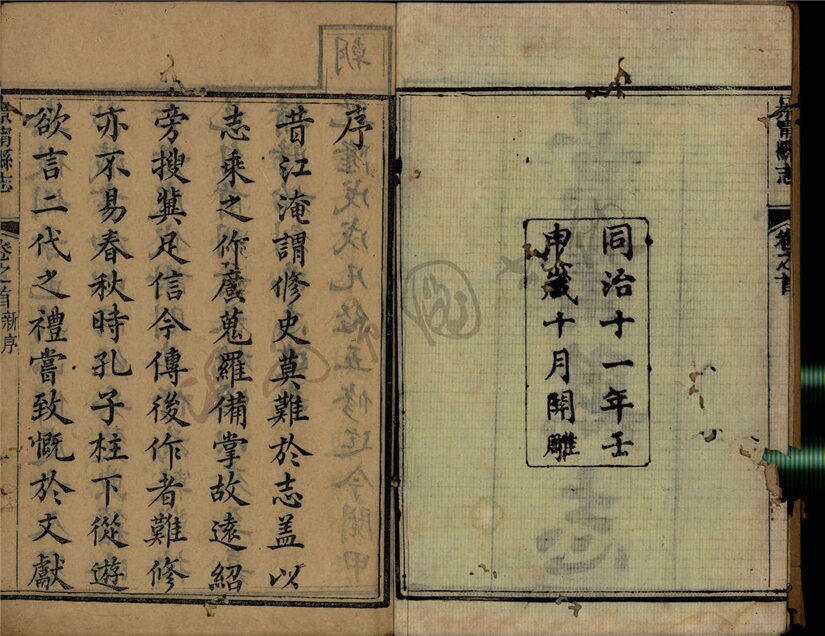 縣志
卷之首
同治十一年壬
申歲十月開雕
序
昔江淹謂修史莫難於志蓋以
志乘之作廣蒐羅備掌故遠紹
旁搜冀足信今傳後作者難修
亦不易春秋時孔子柱下從遊
欲言二代之禮嘗致慨於文獻
縣志
卷之首
新序